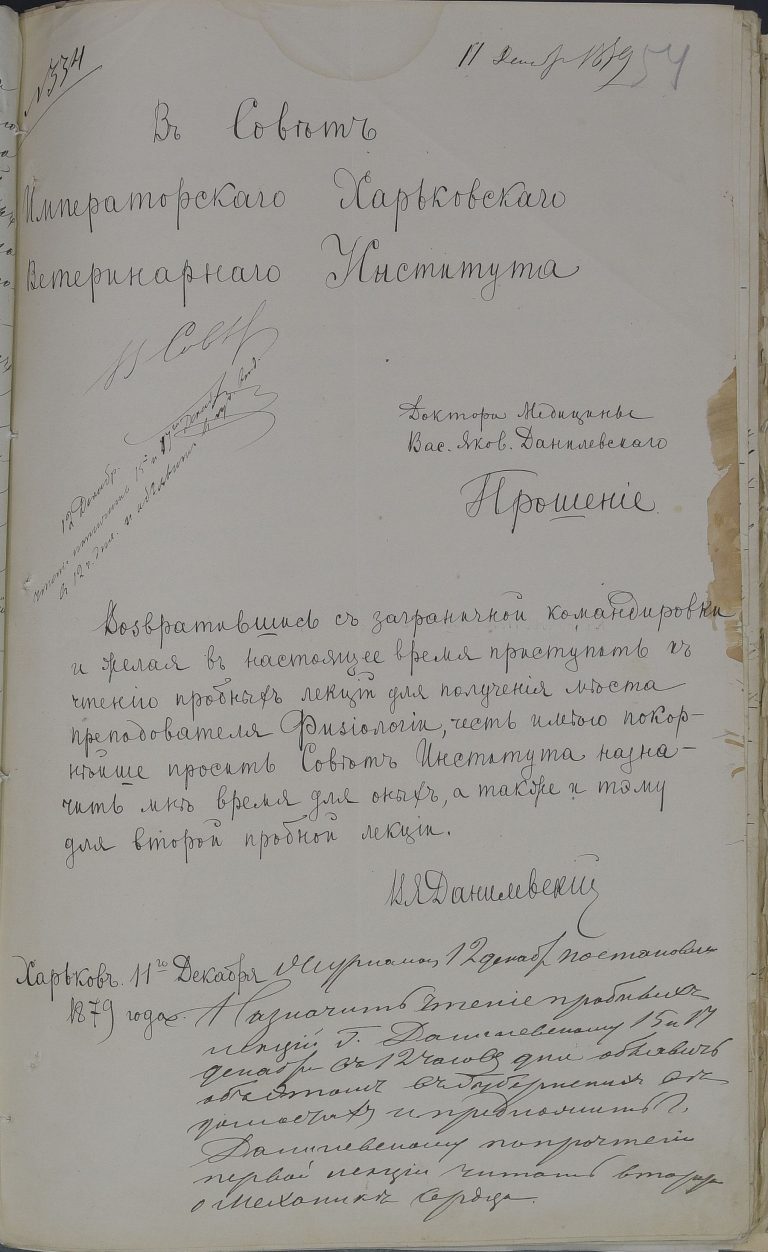 № 334
11 Декабр 1879
54
Въ Совѣтъ
Императорскаго Харьковскаго
Ветеринарнаго Института
Въ Совѣтъ
12 Декабр.
15 и 17го Декабр
въ 12 ч. дня и объявить
Доктора Медицины
Вас. Яков. Данилевскаго
Прошеніе
Возвратившись съ заграничной командировки
и желая въ настоящее время приступить къ
чтенію пробныхъ лекцій для полученія мѣста
преподователя Физіологіи, честь имѣю покор-
нѣйше просить Совѣтъ Института назна-
чить мнѣ время для оныхъ, а также и тэму
для второй пробной лекціи.
ВЯДанилевскій
Харьковъ. 11го Декабря
1879 года.
Журналомъ 12 декабр постановлен
Назначить чтеніе пробныхъ
лекцій Г. Данилевскому 15 и 17
декабр въ 12 часовъ дня объявить
объ этомъ въ Губернскихъ Вѣ-
домостяхъ и предложить Г.
Данилевскому по прочтеніи
первой лекціи читать вторую
о Механикѣ сердца.